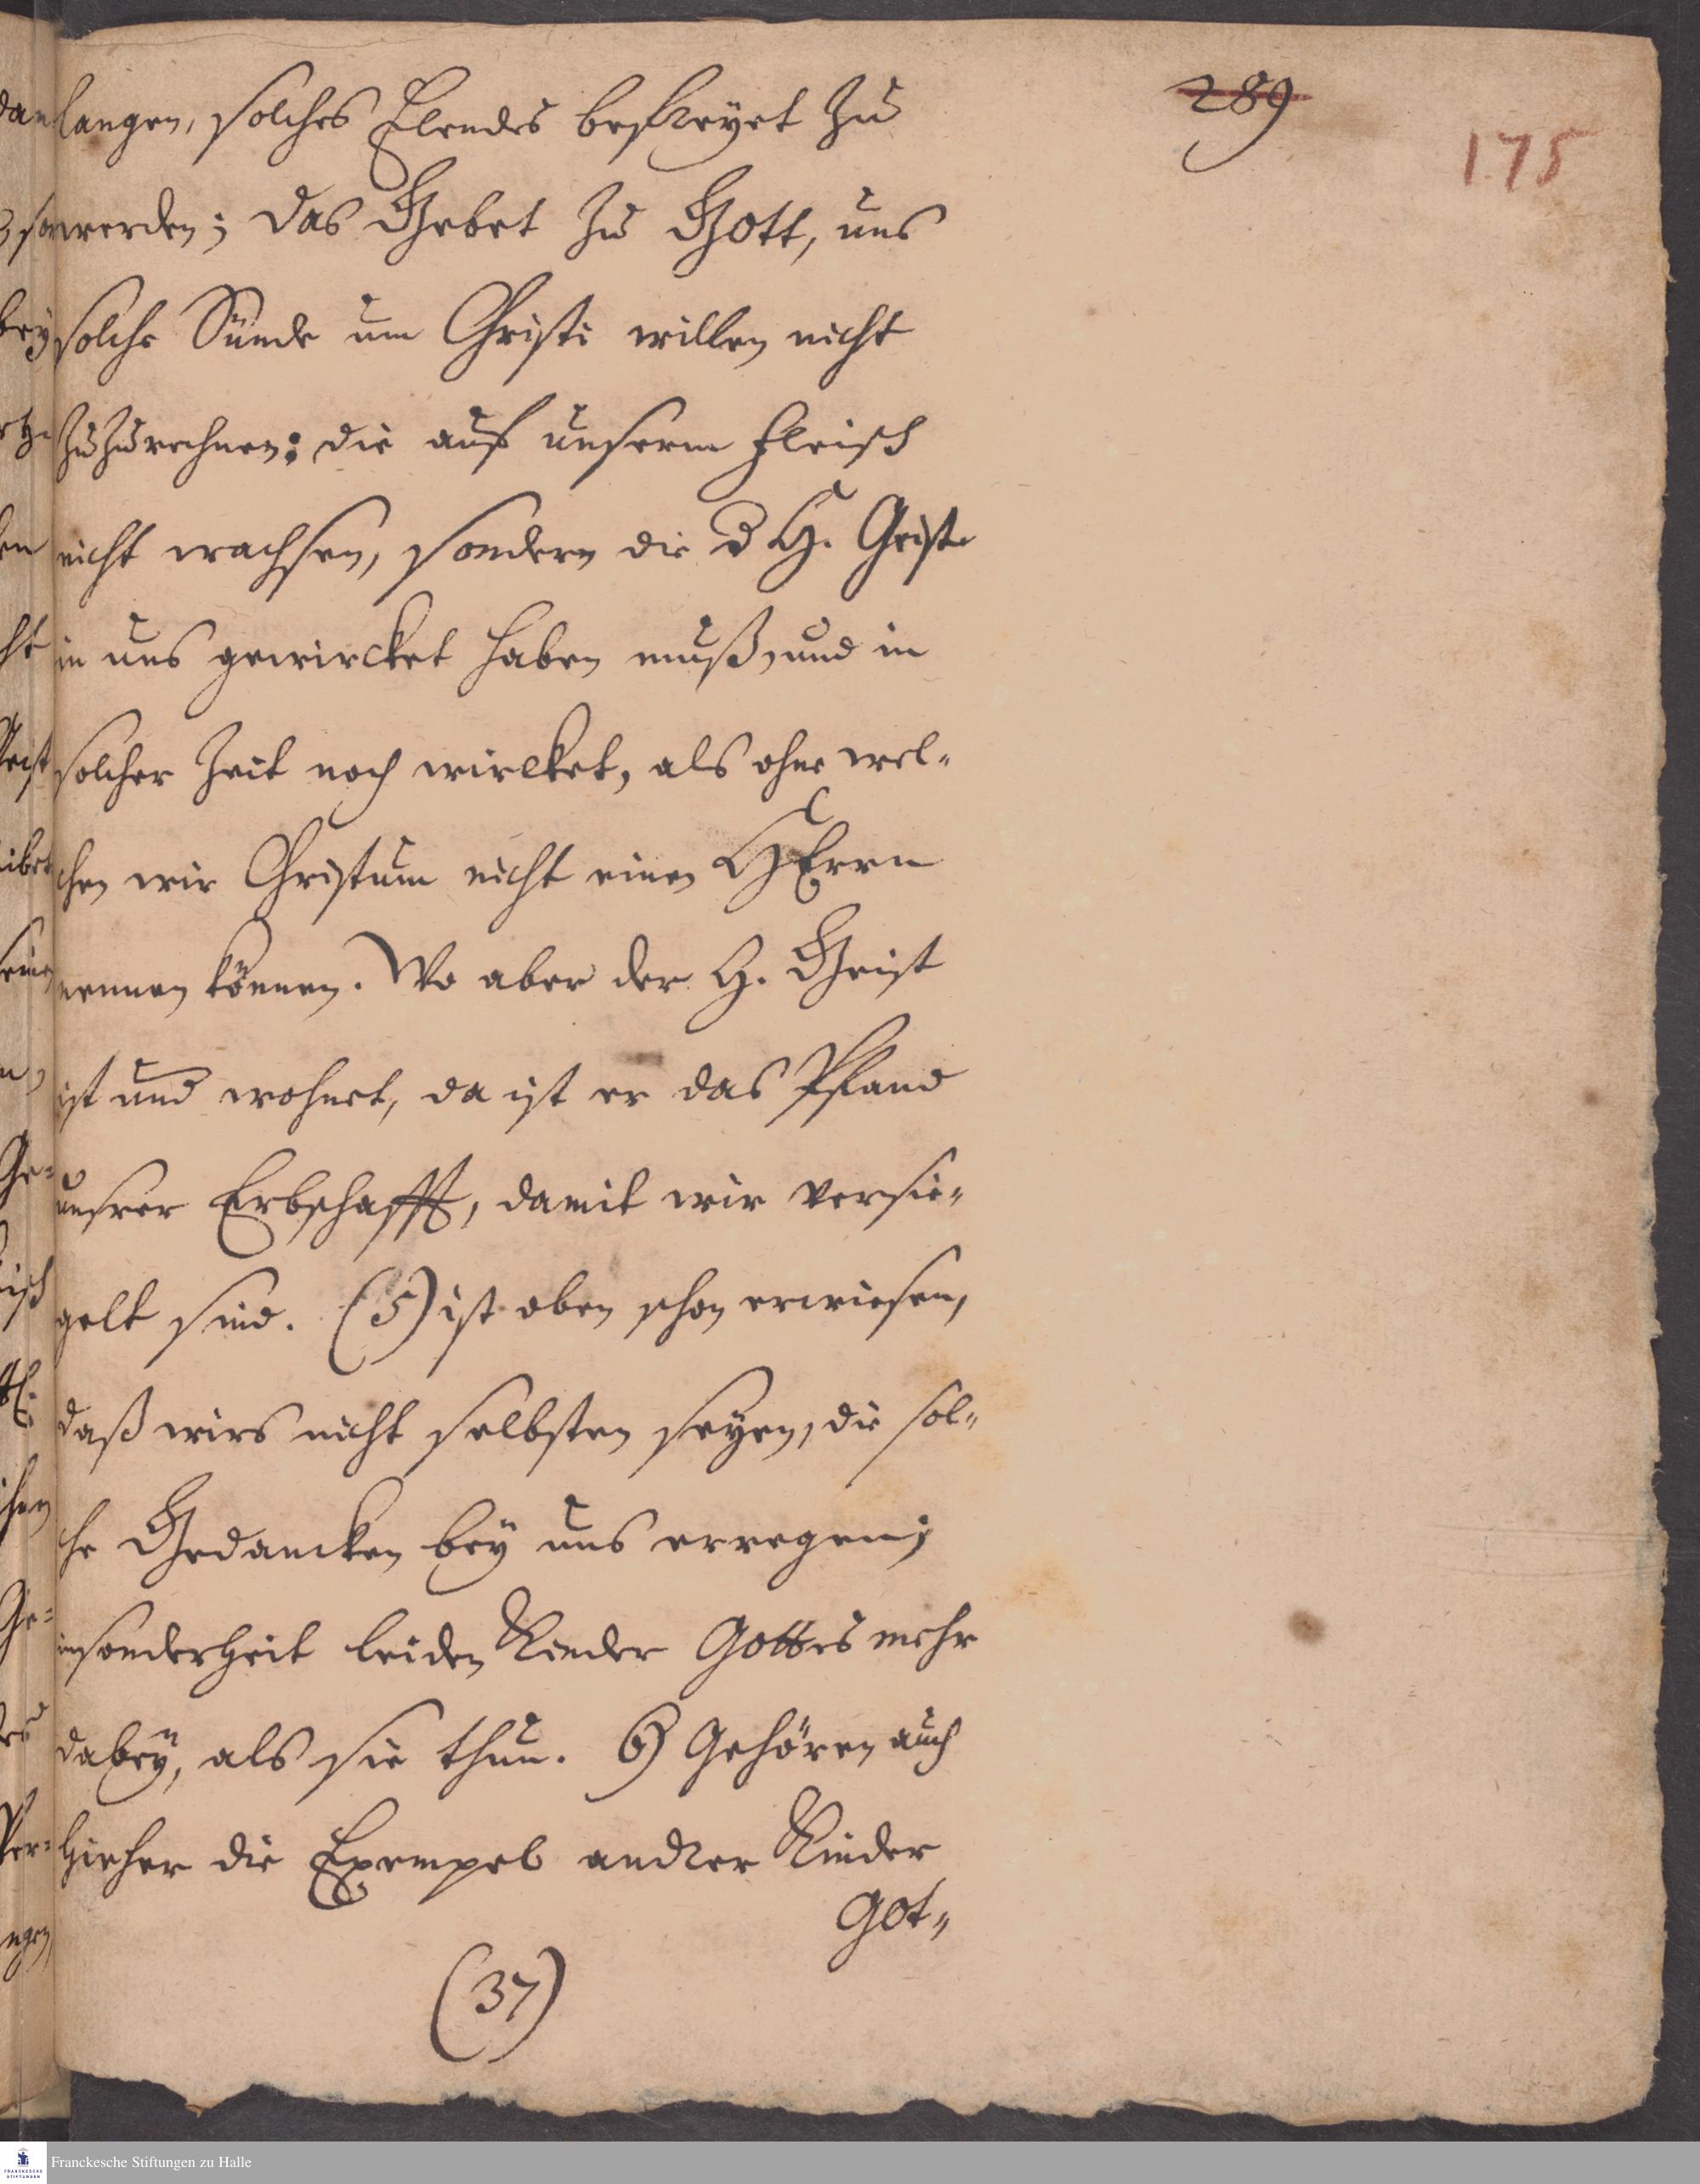 289
175
langen, solches Elendes befreyet zu
werden; das Gebet zu Gott, uns
solche Sünde um Christi willen nicht
zuzurechnen; die auf unserm Fleisch
nicht wachsen, sondern die d H. Geist
in uns gewircket haben muß, und in
solcher Zeit noch wircket, als ohne wel-
chen wir Christum nicht einen HErrn
nennen können. Wo aber der H. Geist
ist und wohnet, da ist er das Pfand
unsrer Erbschafft, damit wir versie-
gelt sind. (5) ist oben schon erwiesen,
daß wirs nicht selbsten seyen, die sol-
che Gedancken bey uns erregen;
insonderheit leiden Kinder Gottes mehr
dabey, als sie thun. 6) Gehören auch
hieher die Exempel andrer Kinder
Got-
(37)
Franckesche Stiftungen zu Halle